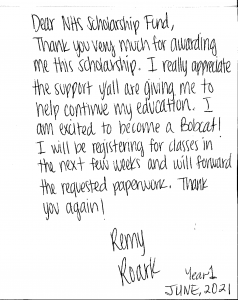 Dear NHS Scholarship Fund,
Thank you very much for awarding
me this scholarship. I really appreciate
the support y'all are giving me to
help continue my education. I
am excited to become a Bobcat!
I will be registering for classes in
the next few weeks and will forward
the requested paperwork. Thank
you again!
Remy
Roark
Year 1
JUNE, 2021